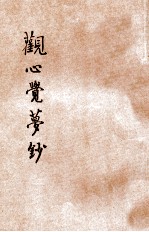 觀心覺夢鈔